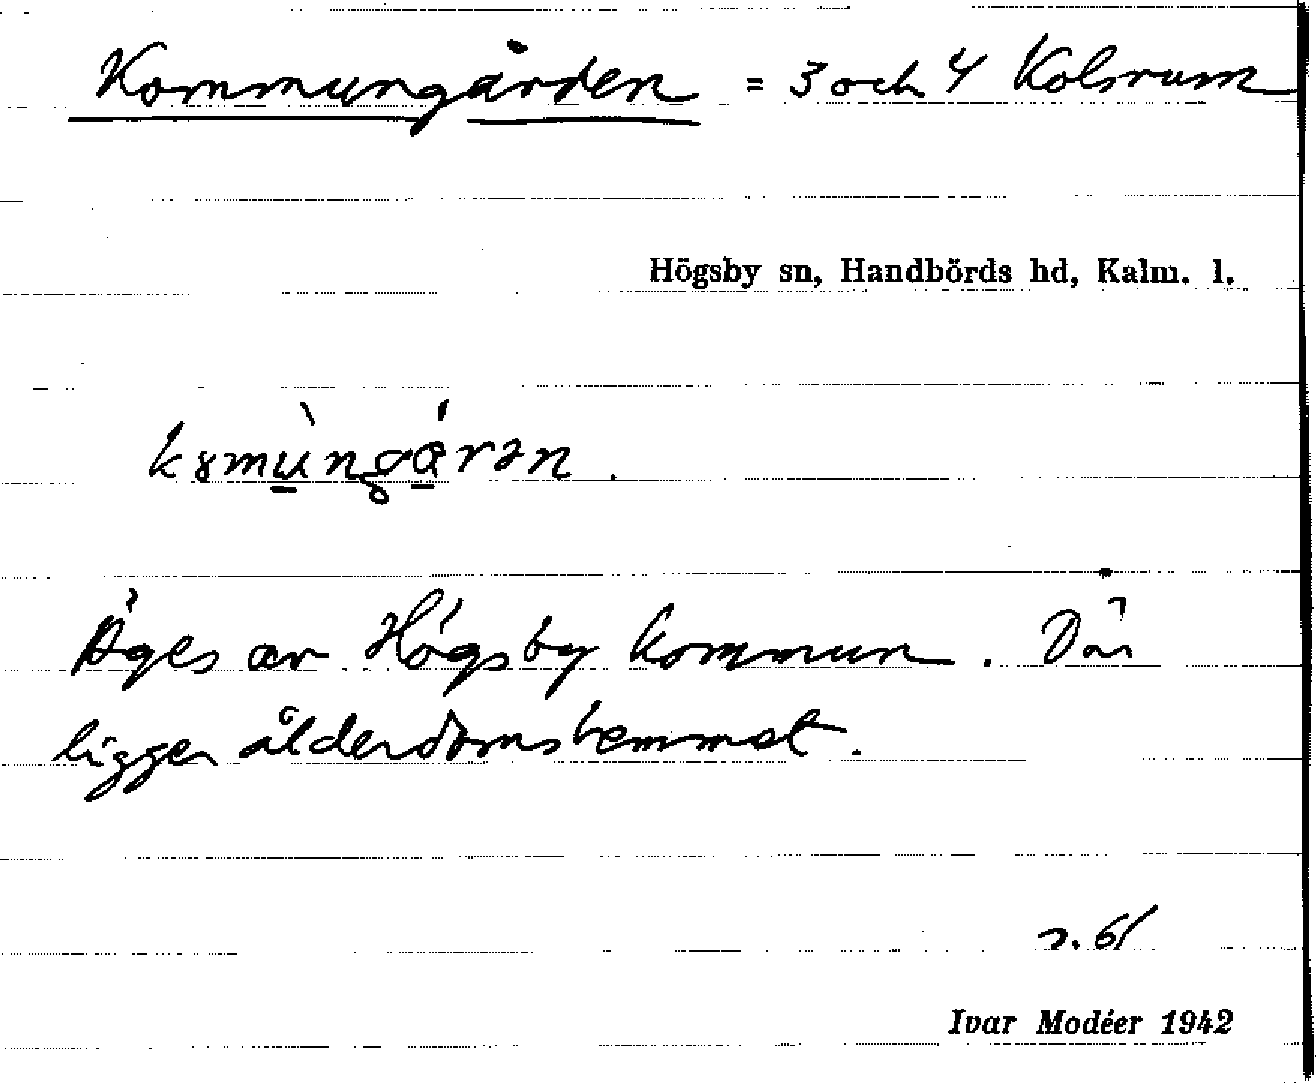 Kommungården = 3 och 4 Kolsrum
Högsby sn, Handbörds hd, Kalm. l.
Äges av Högsby kommun. Där
ligger ålderdomshemmet.
s. 61
Ivar Modéer 1942